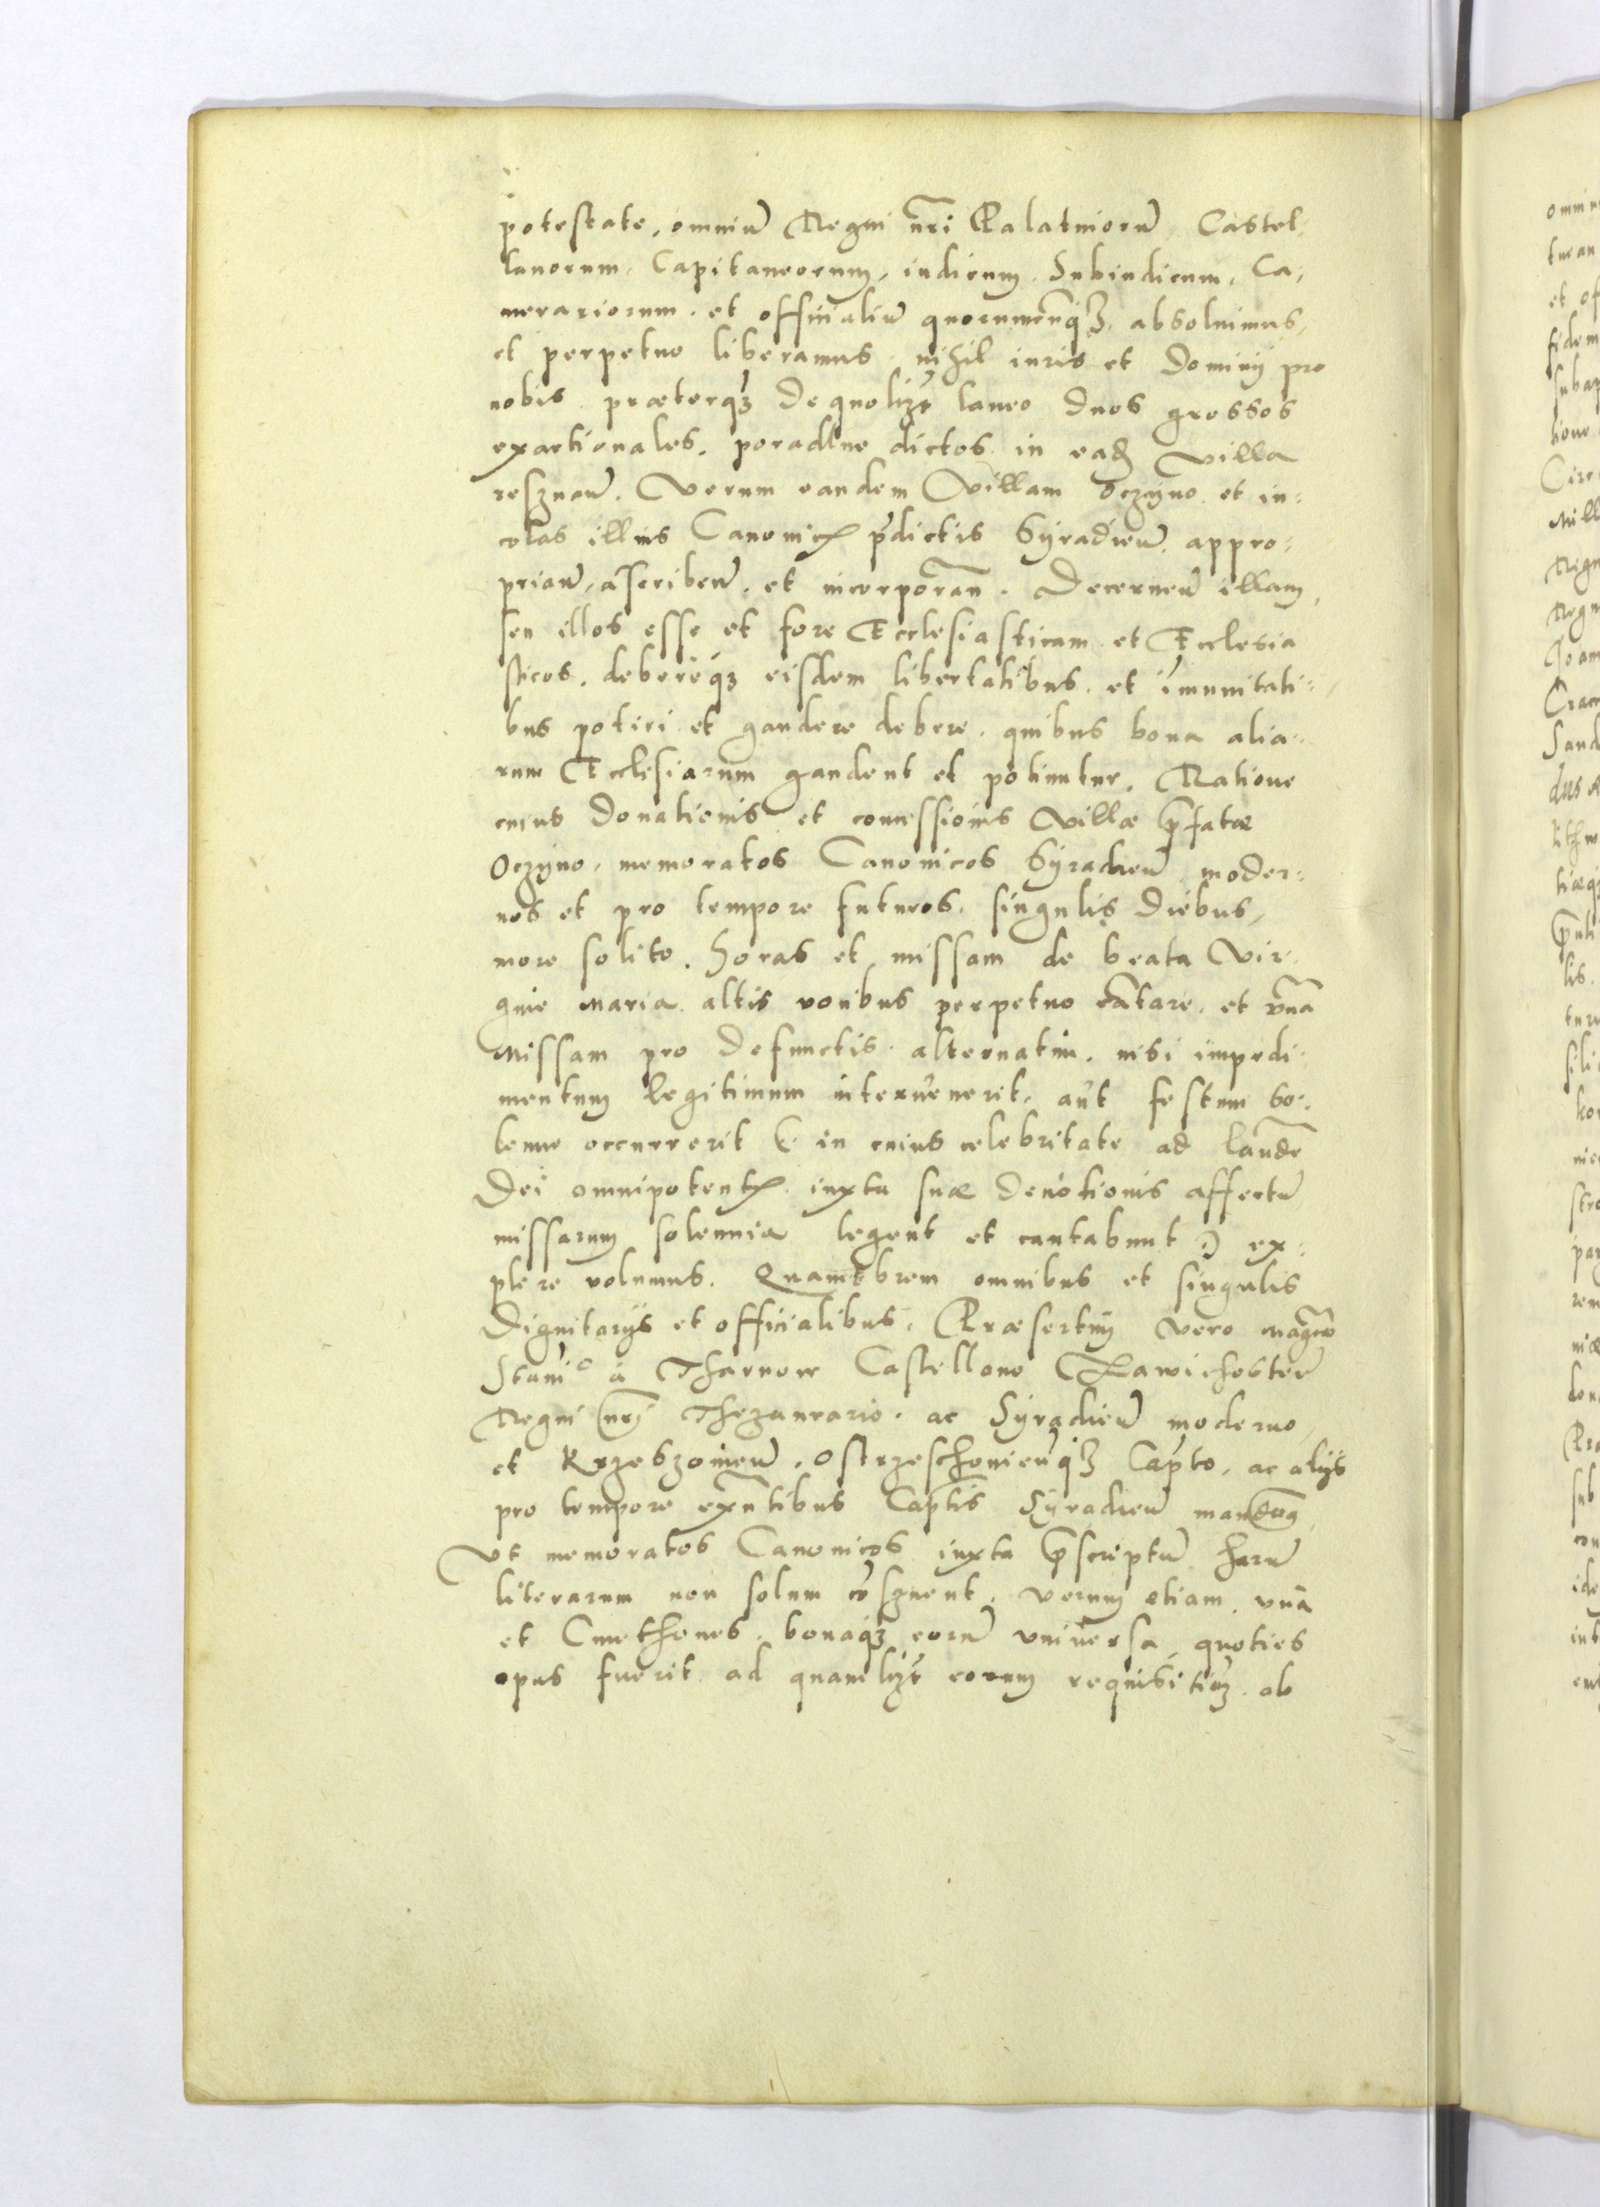 potestate, omniũ Regni nr̃i Palatinorũ, Castel-
lanorum, Capitaneorum, iudicum, Subiudicum, Ca-
merariorum, et officialiũ quorumcunqȝ, absoluimus,
et perpetuo liberamus, nihil iuris et Dominij pro
nobis præterqȝ De quolizt laneo duos grossos
exactionales, poradlne dictos in eadȝ Villa
reszuan̄. Verum eandem Villam Oczyno et in-
colas illius Canonicꝭ p̄dictis Syradien̄ appro-
prian̄, ascriben̄, et incorporan̄. Decernen̄ illam,
seu illos esse et fore Ecclesiasticam et Ecclesia
sticos, debereqȝ eisdem libertatibus, et im̄unitati-
bus potiri et gaudere debere, quibus bona alia-
rum Ecclesiarum gaudent et potiuntur. Ratione
cuius Donationis et concessionis Villæ p̄fatæ
Oczyno, memoratos Canonicos Syradien̄ moder-
nos et pro tempore futuros, singulis diebus,
more solito, horas et missam de beata Vir-
gine Maria altis vocibus perpetuo cãtare, et vnã
Missam pro defunctis alternatim, nisi impedi-
mentum legitimum interuenerit, aut festum So-
lenne occurrerit (: in cuius celebritate ad laudẽ
Dei omnipotentꝭ iuxta suæ deuotionis affectũ
missarum solennia legent et cantabunt :) ex-
plere volumus. Quamobrem omnibus et singulis
Dignitarijs et officialibus, Præsertim vero Mag̃co
Staniº à Tharnow Castellano Zawichosten̄
Regni nr̃i Thezaurario, ac Syradien̄ moderno,
et Krzeszouien̄, Ostrzeschouien̄qȝ Capt̃o, ac alijs
pro tempore exñtibus Capt̃is Syradien̄ mandamꝫ
Vt memoratos Canonicos iuxta p̄scriptũ harũ
literarum non solum cõszuent, verum etiam vnã
et Cmethones, bonaqȝ eorũ vniuersa, quoties
opus fuerit ad quamlizt eorum requisitioȝ ab